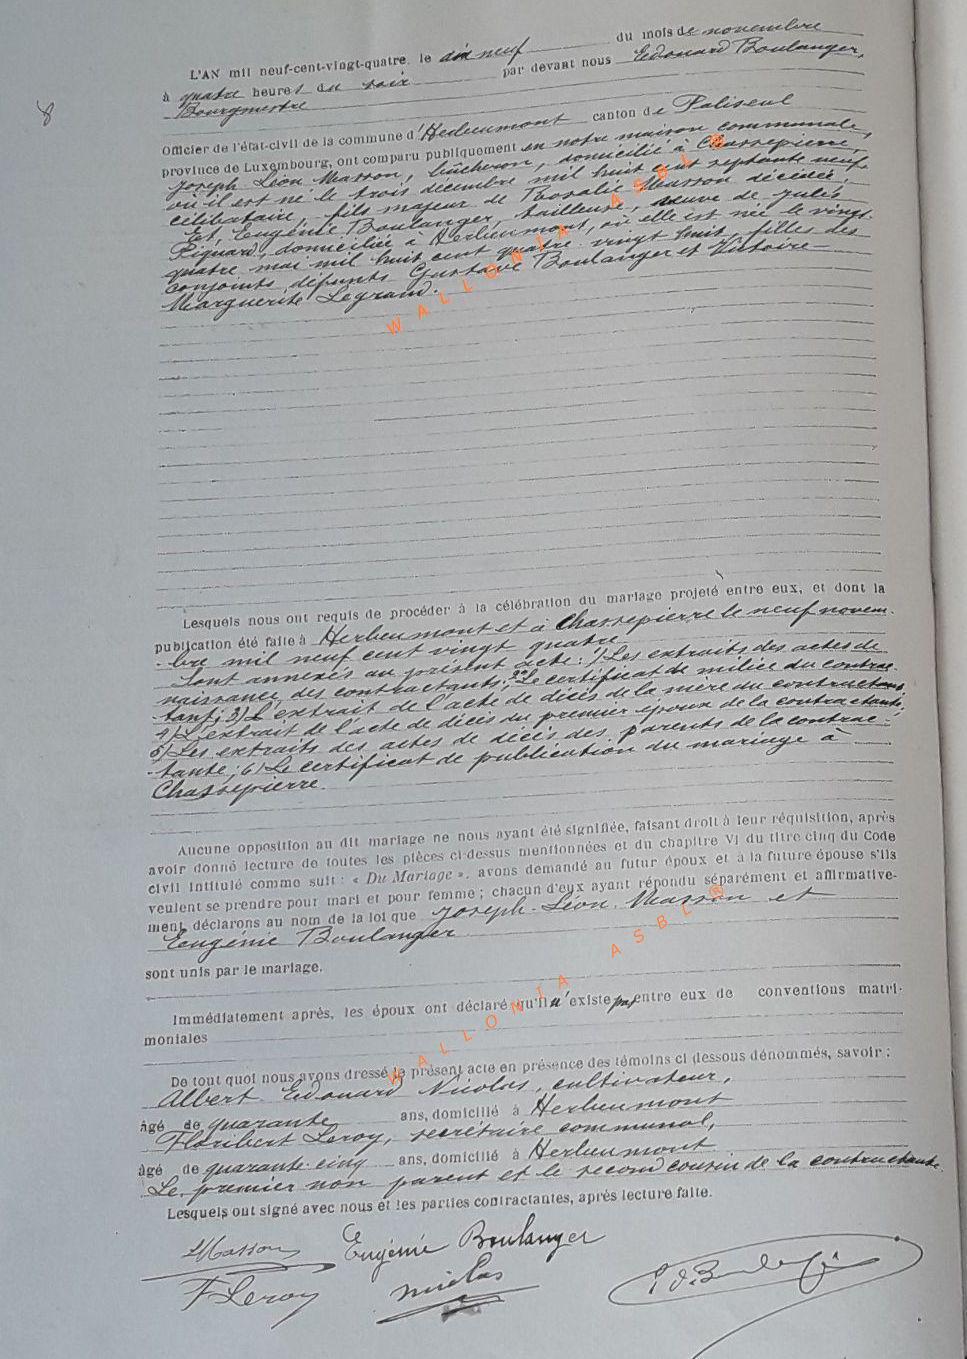 8
L'AN mil neuf-cent-vingt-quatre. le dix neuf du mois de novembre
à quatre heures du soir par devant nous Edouard Boulanger,
Bourgmestre
Officier de l'état-civil de la commune d'Herbeumont canton de Paliseul
province de Luxembourg, ont comparu publiquement en notre maison communale,
Joseph Léon Masson, bûcheron, domicilié à Chassepierre,
où il est né le trois décembre mil huit cent septante neuf
célibataire, fils majeur de Rosalie Masson décédée.
Et, Eugénie Boulanger, tailleuse, veuve de Jules
Piquard, domiciliée à Herbeumont, où elle est née le vingt-
quatre mai mil huit cent quatre vingt huit, filles des
conjoints défunts Gustave Boulanger et Victoire
Marguerite Legrand.
Lesquels nous ont requis de procéder à la célébration du mariage projeté entre eux, et dont la
publication été faite à Herbeumont et à Chassepierre le neuf novem-
-bre mil neuf cent vingt quatre
Sont annexés au présent acte: 1) Les extraits des actes de
naissance des contractants; 2° Le certificat de milice du contrac-
tant; 3) L'extrait de l'acte de décès de la mère du contractant
4) L'extrait de l'acte de décès du premier époux de la contractante,
5) Les extraits des actes de décès des parents de la contrac-
-tante; 6) Le certificat de publication du mariage à
Chassepierre.
Aucune opposition au dit mariage ne nous ayant été signifiée, faisant droit à leur réquisition, après
avoir donné lecture de toutes les pièces ci-dessus mentionnées et du chapitre VI du titre cinq du Code
civil intitulé comme suit : « Du Mariage ». avons demandé au futur époux et à la future épouse s'ils
veulent se prendre pour mari et pour femme ; chacun d'eux ayant répondu séparément et affirmative-
ment, déclarons au nom de la loi que Joseph-Léon Masson et
Eugénie Boulanger
sont unis par le mariage.
Immédiatement après, les époux ont déclaré qu'il n'existe pas entre eux de conventions matri-
moniales
De tout quoi nous avons dressé le présent acte en présence des témoins ci dessous dénommés, savoir :
Albert Edouard Nicolas, cultivateur,
âgé de quarante ans, domicilié à Herbeumont
Floribert Leroy, secrétaire communal,
âgé de quarante-cinq ans, domicilié à Herbeumont
Le premier non parent et le second cousin de la contractante
Lesquels ont signé avec nous et les parties contractantes, après lecture faite.
LMasson Eugénie Boulanger
F Leroy Nicolas Ed. Boulanger
WALLONIA ASBL ®
WALLONIA ASBL ®